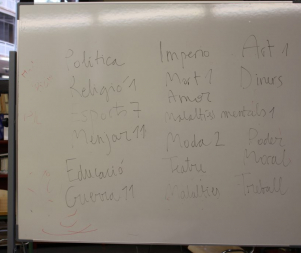 Política
Religió 1
Esports 7
Menjar 11
Educació
Guerra 11
Imperio
Mort 1
Amor
malalties mentals 1
Moda 2
Teatre
Art 1
Diners
Poder
Moral
Treball